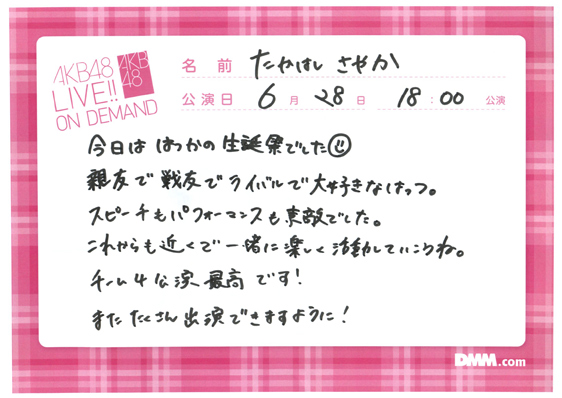 AKB48
LIVE!!
ON DEMAND
AKB
48
名前 たかはし さやか
公演日 6月 28日 18:00 公演
今日は はっつの 生誕祭でした
親友で 戦友で ライバルで 大好きなはっつ。
スピーチも パフォーマンスも 素敵でした。
これからも 近くで 一緒に 楽しく 活動していこうね。
チーム4 公演 最高 です!
また たくさん 出演できますように!
DMM.com